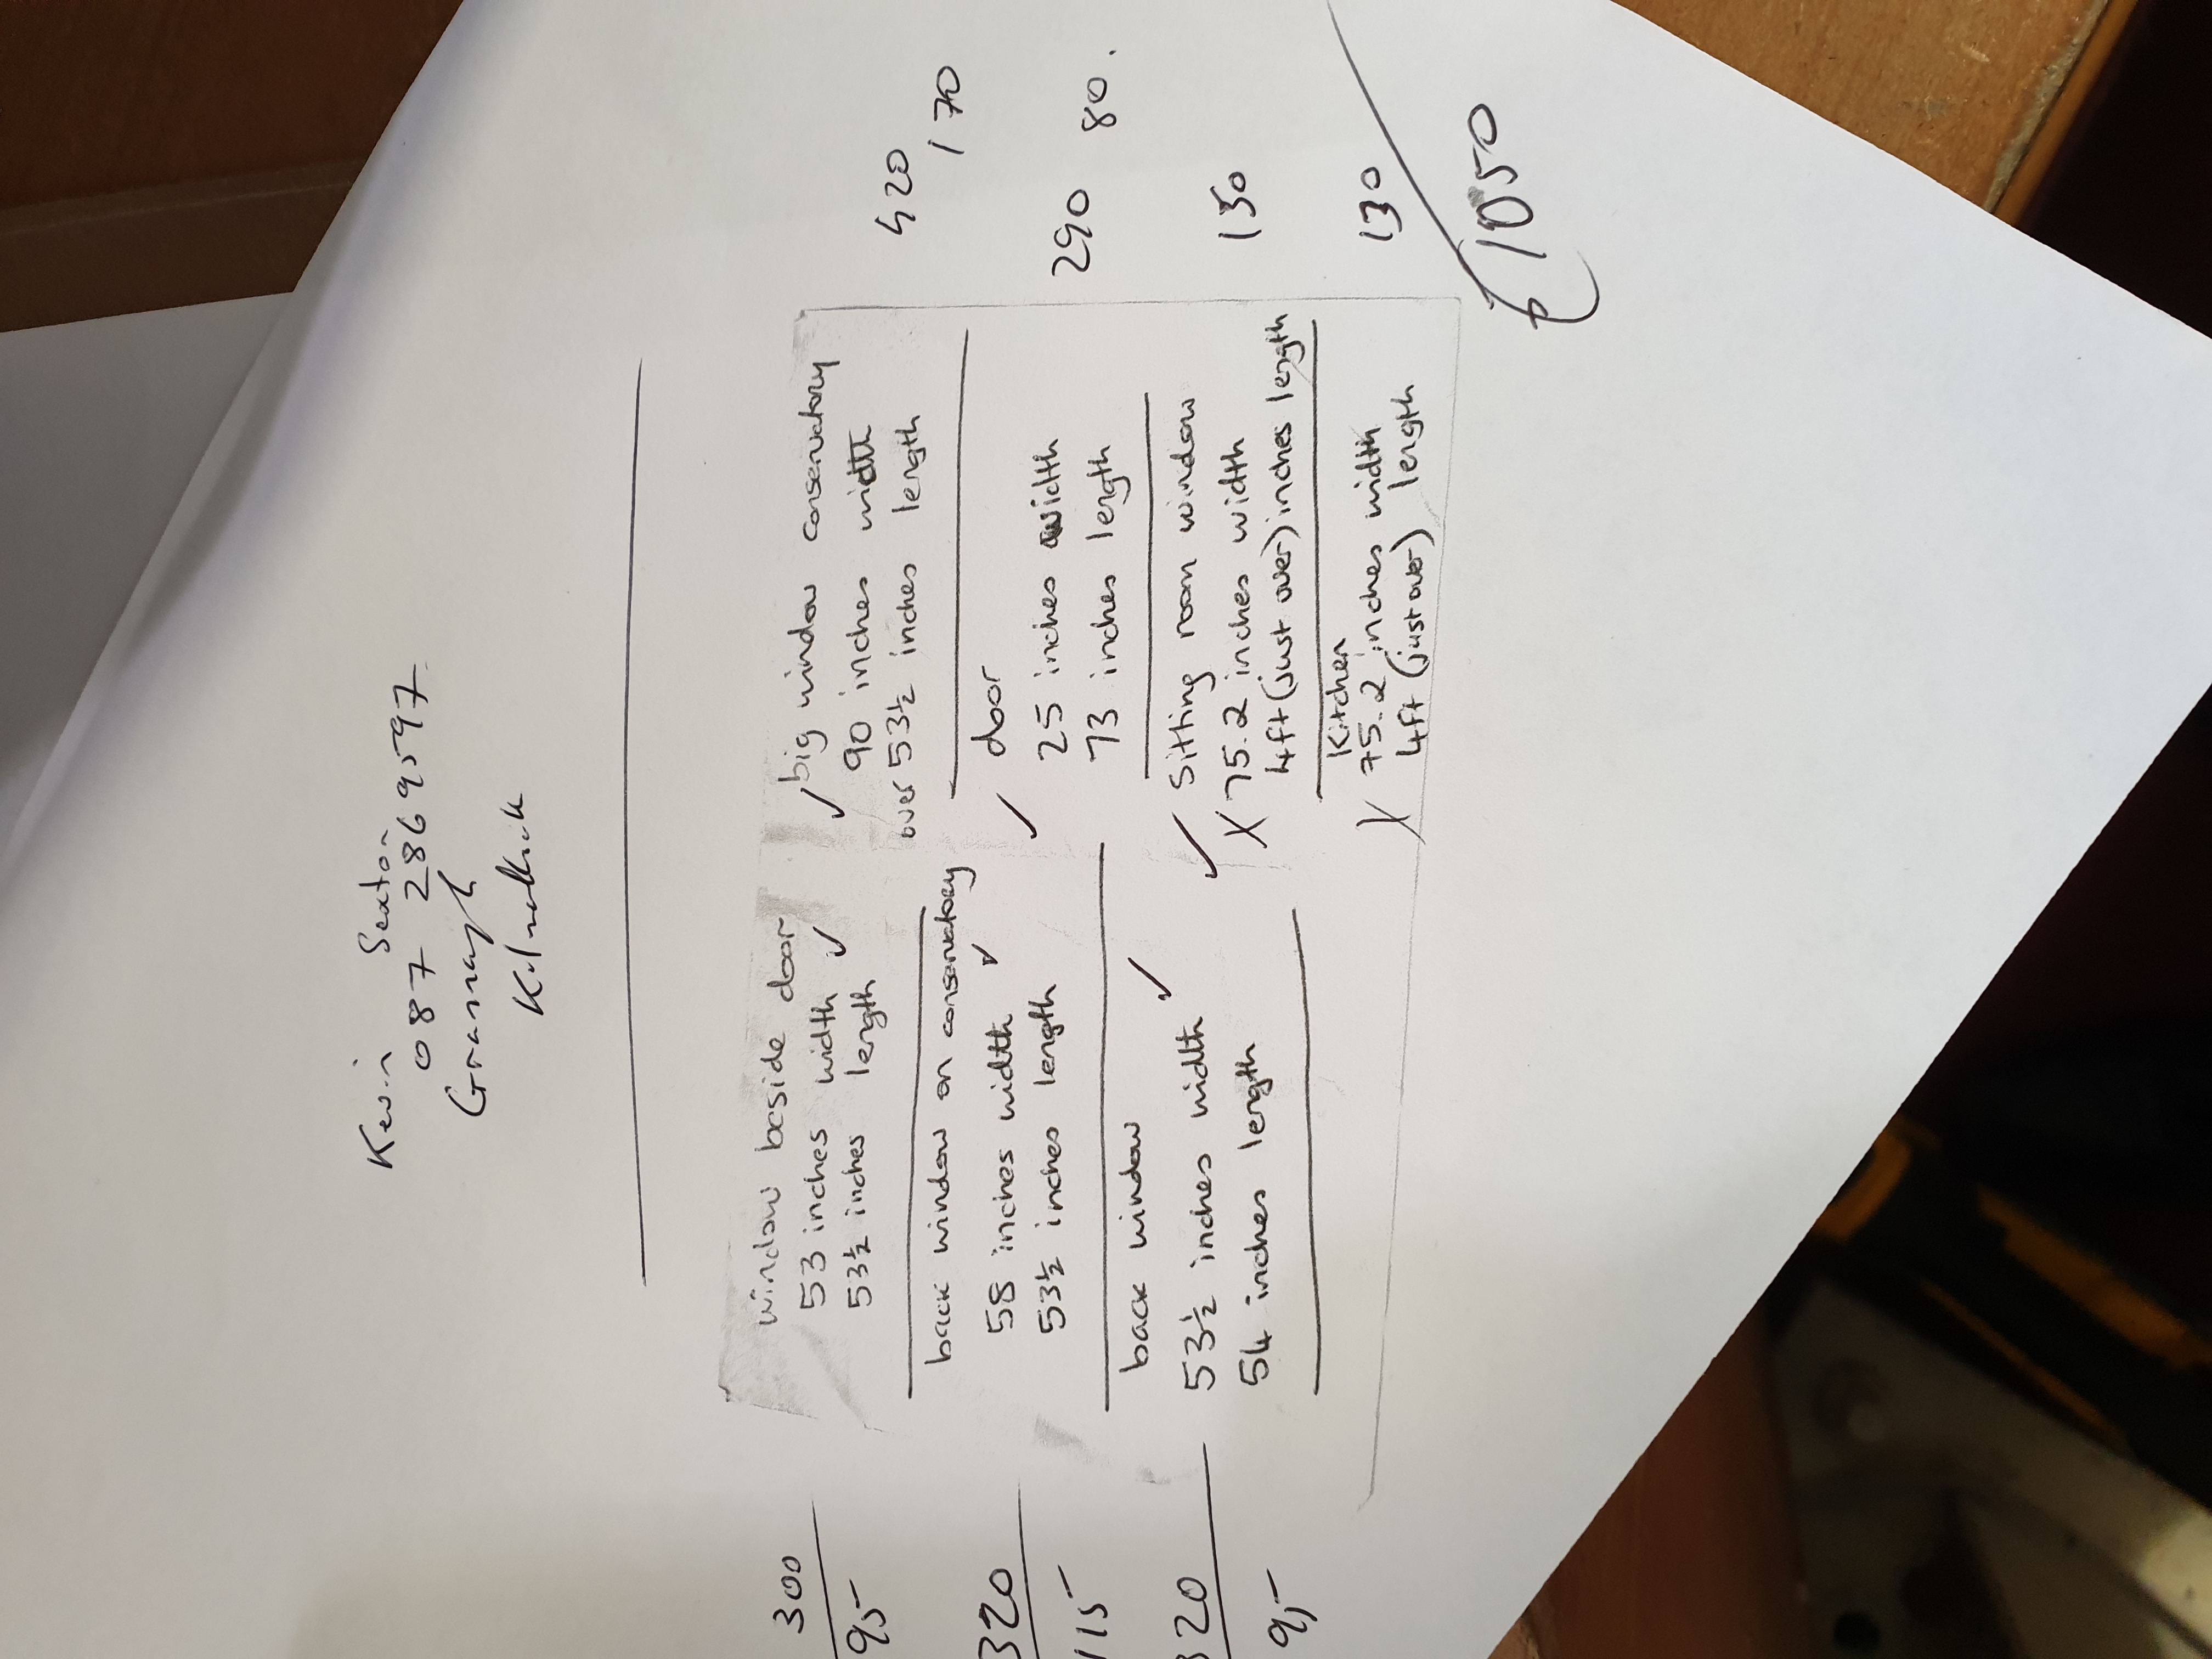 Kevin Sexton
087 2869597
Granagh
Kilmallock
300
95
window beside door
53 inches width ✓
53½ inches length
320
115
back window on conservatory
58 inches width ✓
53½ inches length
320
95
back window ✓
53½ inches width
54 inches length
✓ big window conservatory
90 inches width
over 53½ inches length
420
170
✓ door
25 inches width
73 inches length
290 80.
✓ Sitting room window
X 75.2 inches width
4ft (just over) inches length
150
Kitchen
X 75.2 inches width
4ft (just over) length
130
€1050